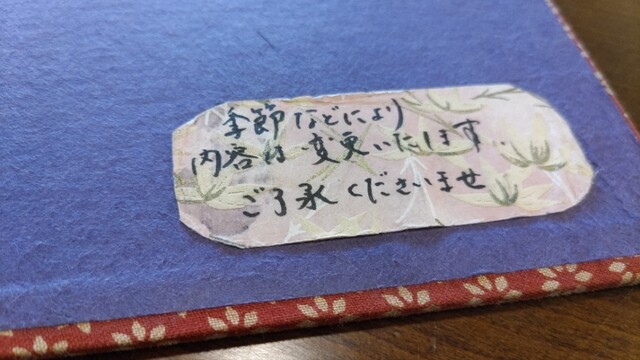 季節などにより
内容は変更いたします..
ご了承くださいませ